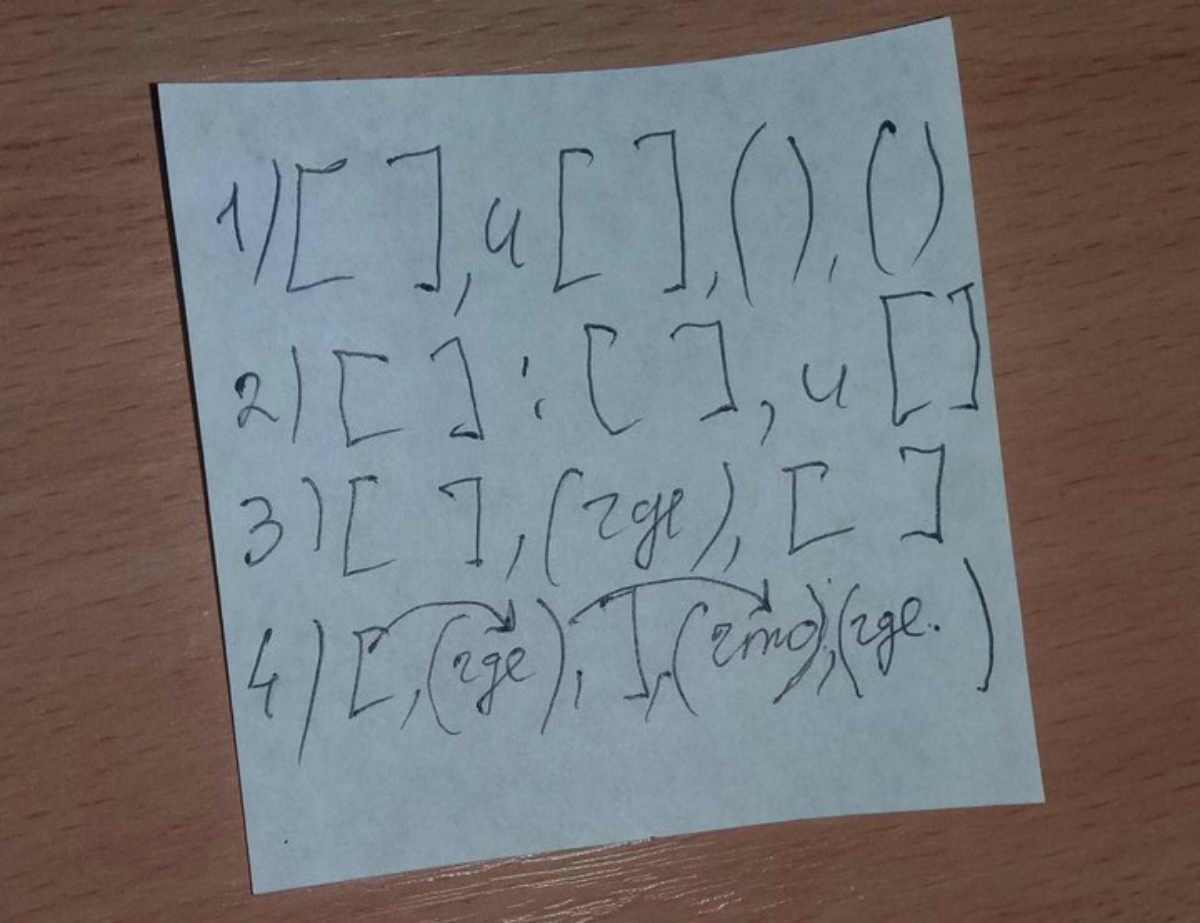 1) [ ], и [ ], ( ), ( )
2) [ ] : [ ], и [ ]
3) [ ], (где), [ ]
4) [, (где), ], (что), (где. )